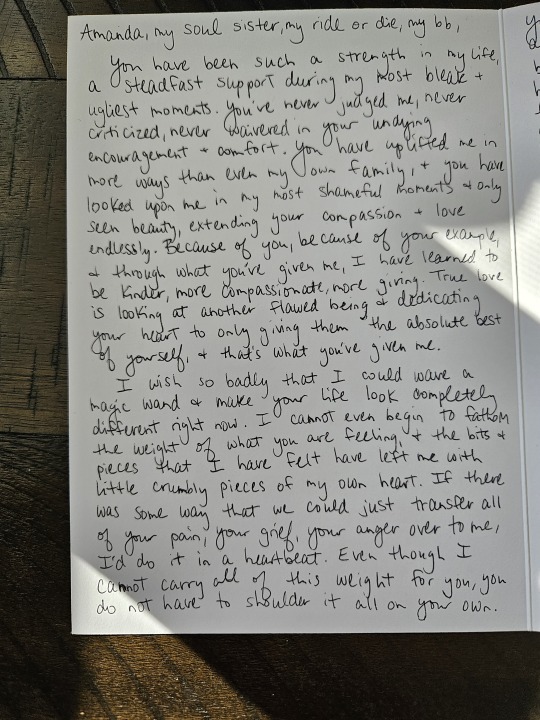 Amanda, my soul sister, my ride or die, my bb,
You have been such a strength in my life,
a steadfast support during my most bleak +
ugliest moments. You've never judged me, never
criticized, never waivered in your undying
encouragement + comfort. You have uplifted me in
more ways than even my own family, + you have
looked upon me in my most shameful moments + only
seen beauty, extending your compassion + love
endlessly. Because of you, because of your example,
+ through what you've given me, I have learned to
be kinder, more compassionate, more giving. True love
is looking at another flawed being + dedicating
your heart to only giving them the absolute best
of yourself, + that's what you've given me.
I wish so badly that I could wave a
magic wand + make your life look completely
different right now. I cannot even begin to fathom
the weight of what you are feeling, + the bits +
pieces that I have felt have left me with
little crumbly pieces of my own heart. If there
was some way that we could just transfer all
of your pain, your grief, your anger over to me,
I'd do it in a heartbeat. Even though I
cannot carry all of this weight for you, you
do not have to shoulder it all on your own.